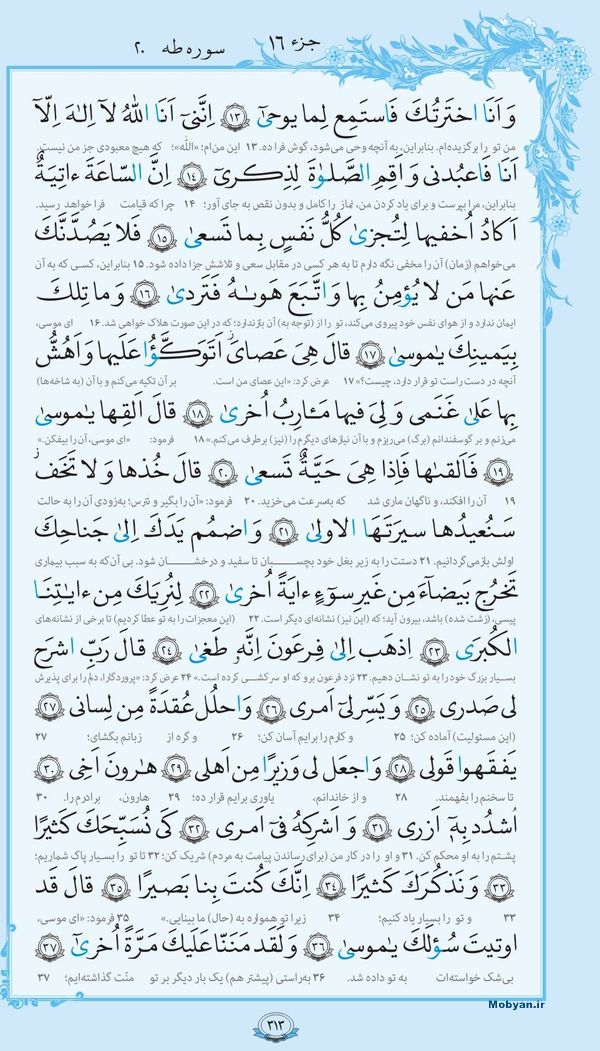 جزء ۱۶ سوره طه ۲۰
وَ اَنَا اختَرتُكَ فَاستَمِع لِما يوحىٰ ۱۳ اِنَّنى اَنَا اللهُ لآ اِلٰهَ اِلّآ
من تو را برگزیده‌ام. بنابراین، به آنچه وحی می‌شود، گوش فرا ده. ۱۳ این من‌ام؛ «الله»؛ که هیچ معبودی جز من نیست.
اَنَا فَاعبُدنى وَ اَقِمِ الصَّلوٰةَ لِذِكرى ۱۴ اِنَّ السّاعَةَ ءاتِيَةٌ
بنابراین، مرا بپرست و برای یاد کردن من، نماز را کامل و بدون نقص به جای آور؛ ۱۴ چرا که قیامت فرا خواهد رسید.
اَكادُ اُخفيها لِتُجزىٰ كُلُّ نَفسٍ بِما تَسعىٰ ۱۵ فَلا يَصُدَّنَّكَ
می‌خواهم (زمان) آن را مخفی نگه دارم تا به هر کسی در مقابل سعی و تلاشش جزا داده شود. ۱۵ بنابراین، کسی که به آن
عَنها مَن لا يُؤمِنُ بِها وَ اتَّبَعَ هَوىٰهُ فَتَردىٰ ۱۶ وَ ما تِلكَ
ایمان ندارد و از هوای نفس خود پیروی می‌کند، تو را از (توجه به) آن بازندارد؛ که در این صورت هلاک خواهی شد. ۱۶ ای موسی،
بِيَمينِكَ يٰموسىٰ ۱۷ قالَ هِىَ عَصاىَ اَتَوَكَّؤُا عَلَيها وَ اَهُشُّ
آنچه در دست راست تو قرار دارد، چیست؟» ۱۷ عرض کرد: «این عصای من است. بر آن تکیه می‌کنم و با آن (به شاخه‌ها)
بِها عَلىٰ غَنَمى وَ لِىَ فيها مَـٔارِبُ اُخرىٰ ۱۸ قالَ اَلقِها يٰموسىٰ
می‌زنم و بر گوسفندانم (برگ) می‌ریزم و با آن نیازهای دیگرم را (نیز) برطرف می‌کنم.» ۱۸ فرمود: «ای موسی، آن را بیفکن.»
۱۹ فَاَلقىٰها فَاِذا هِىَ حَيَّةٌ تَسعىٰ ۲۰ قالَ خُذها وَ لا تَخَف
۱۹ آن را افکند، و ناگهان ماری شد که به‌سرعت می‌خزید. ۲۰ فرمود: «آن را بگیر و نترس؛ به‌زودی آن را به حالت
سَنُعيدُها سيرَتَهَا الاولىٰ ۲۱ وَ اضمُم يَدَكَ اِلىٰ جَناحِكَ
اولش بازمی‌گردانیم. ۲۱ دستت را به زیر بغل خود بچسبان تا سفید و درخشان شود. بی آن‌که به سبب بیماری
تَخرُج بَيضآءَ مِن غَيرِ سوٓءٍ ءايَةً اُخرىٰ ۲۲ لِنُرِيَكَ مِن ءايٰتِنَا
پیسی، (زشت شده) باشد، بیرون آید؛ که (این نیز) نشانه‌ای دیگر است. ۲۲ (این معجزات را به تو عطا کردیم) تا برخی از نشانه‌های
الكُبرَى ۲۳ اِذهَب اِلىٰ فِرعَونَ اِنَّهُ طَغىٰ ۲۴ قالَ رَبِّ اشرَح
بسیار بزرگ خود را به تو نشان دهیم. ۲۳ نزد فرعون برو که او سرکشی کرده است.» ۲۴ عرض کرد: «پروردگارا، دلم را برای پذیرش
لى صَدرى ۲۵ وَ يَسِّر لى اَمرى ۲۶ وَ احلُل عُقدَةً مِن لِسانى ۲۷
(این مسئولیت) آماده کن؛ ۲۵ و کارم را برایم آسان کن؛ ۲۶ و گره از زبانم بگشای؛ ۲۷
يَفقَهوا قَولى ۲۸ وَ اجعَل لى وَزيرًا مِن اَهلى ۲۹ هٰرونَ اَخِى ۳۰
تا سخنم را بفهمند. ۲۸ و از خاندانم، یاوری برایم قرار ده؛ ۲۹ هارون، برادرم را. ۳۰
اُشدُد بِهٓ اَزرى ۳۱ وَ اَشرِكهُ فىٓ اَمرى ۳۲ كَى نُسَبِّحَكَ كَثيرًا
پشتم را به او محکم کن. ۳۱ و او را در کار من (برای رساندن پیامت به مردم) شریک کن؛ ۳۲ تا تو را بسیار پاک شماریم؛
۳۳ وَ نَذكُرَكَ كَثيرًا ۳۴ اِنَّكَ كُنتَ بِنا بَصيرًا ۳۵ قالَ قَد
۳۳ و تو را بسیار یاد کنیم؛ ۳۴ زیرا تو همواره به (حال) ما بینایی.» ۳۵ فرمود: «ای موسی،
اوتيتَ سُؤلَكَ يٰموسىٰ ۳۶ وَ لَقَد مَنَنّا عَلَيكَ مَرَّةً اُخرىٓ ۳۷
بی‌شک خواسته‌ات به تو داده شد. ۳۶ به‌راستی (پیشتر هم) یک بار دیگر بر تو منّت گذاشته‌ایم؛ ۳۷
Mobyan.ir
۳۱۳